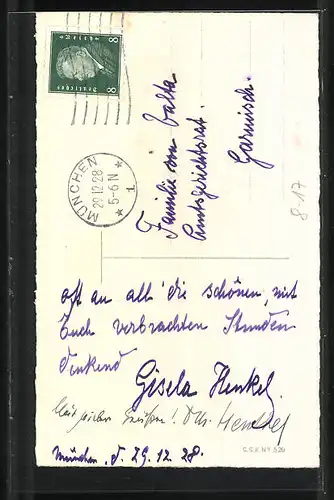 8 Deutsches Reich 8
MÜNCHEN
29.12.28
5-6 N
* 1 *
Familie von
Amtsgerichtsrat.
Garmisch.
8-17
oft an all' die schönen, mit
Euch verbrachten Stunden
denkend
Gisela Henkel.
Henkel
München, d. 29.12.28.